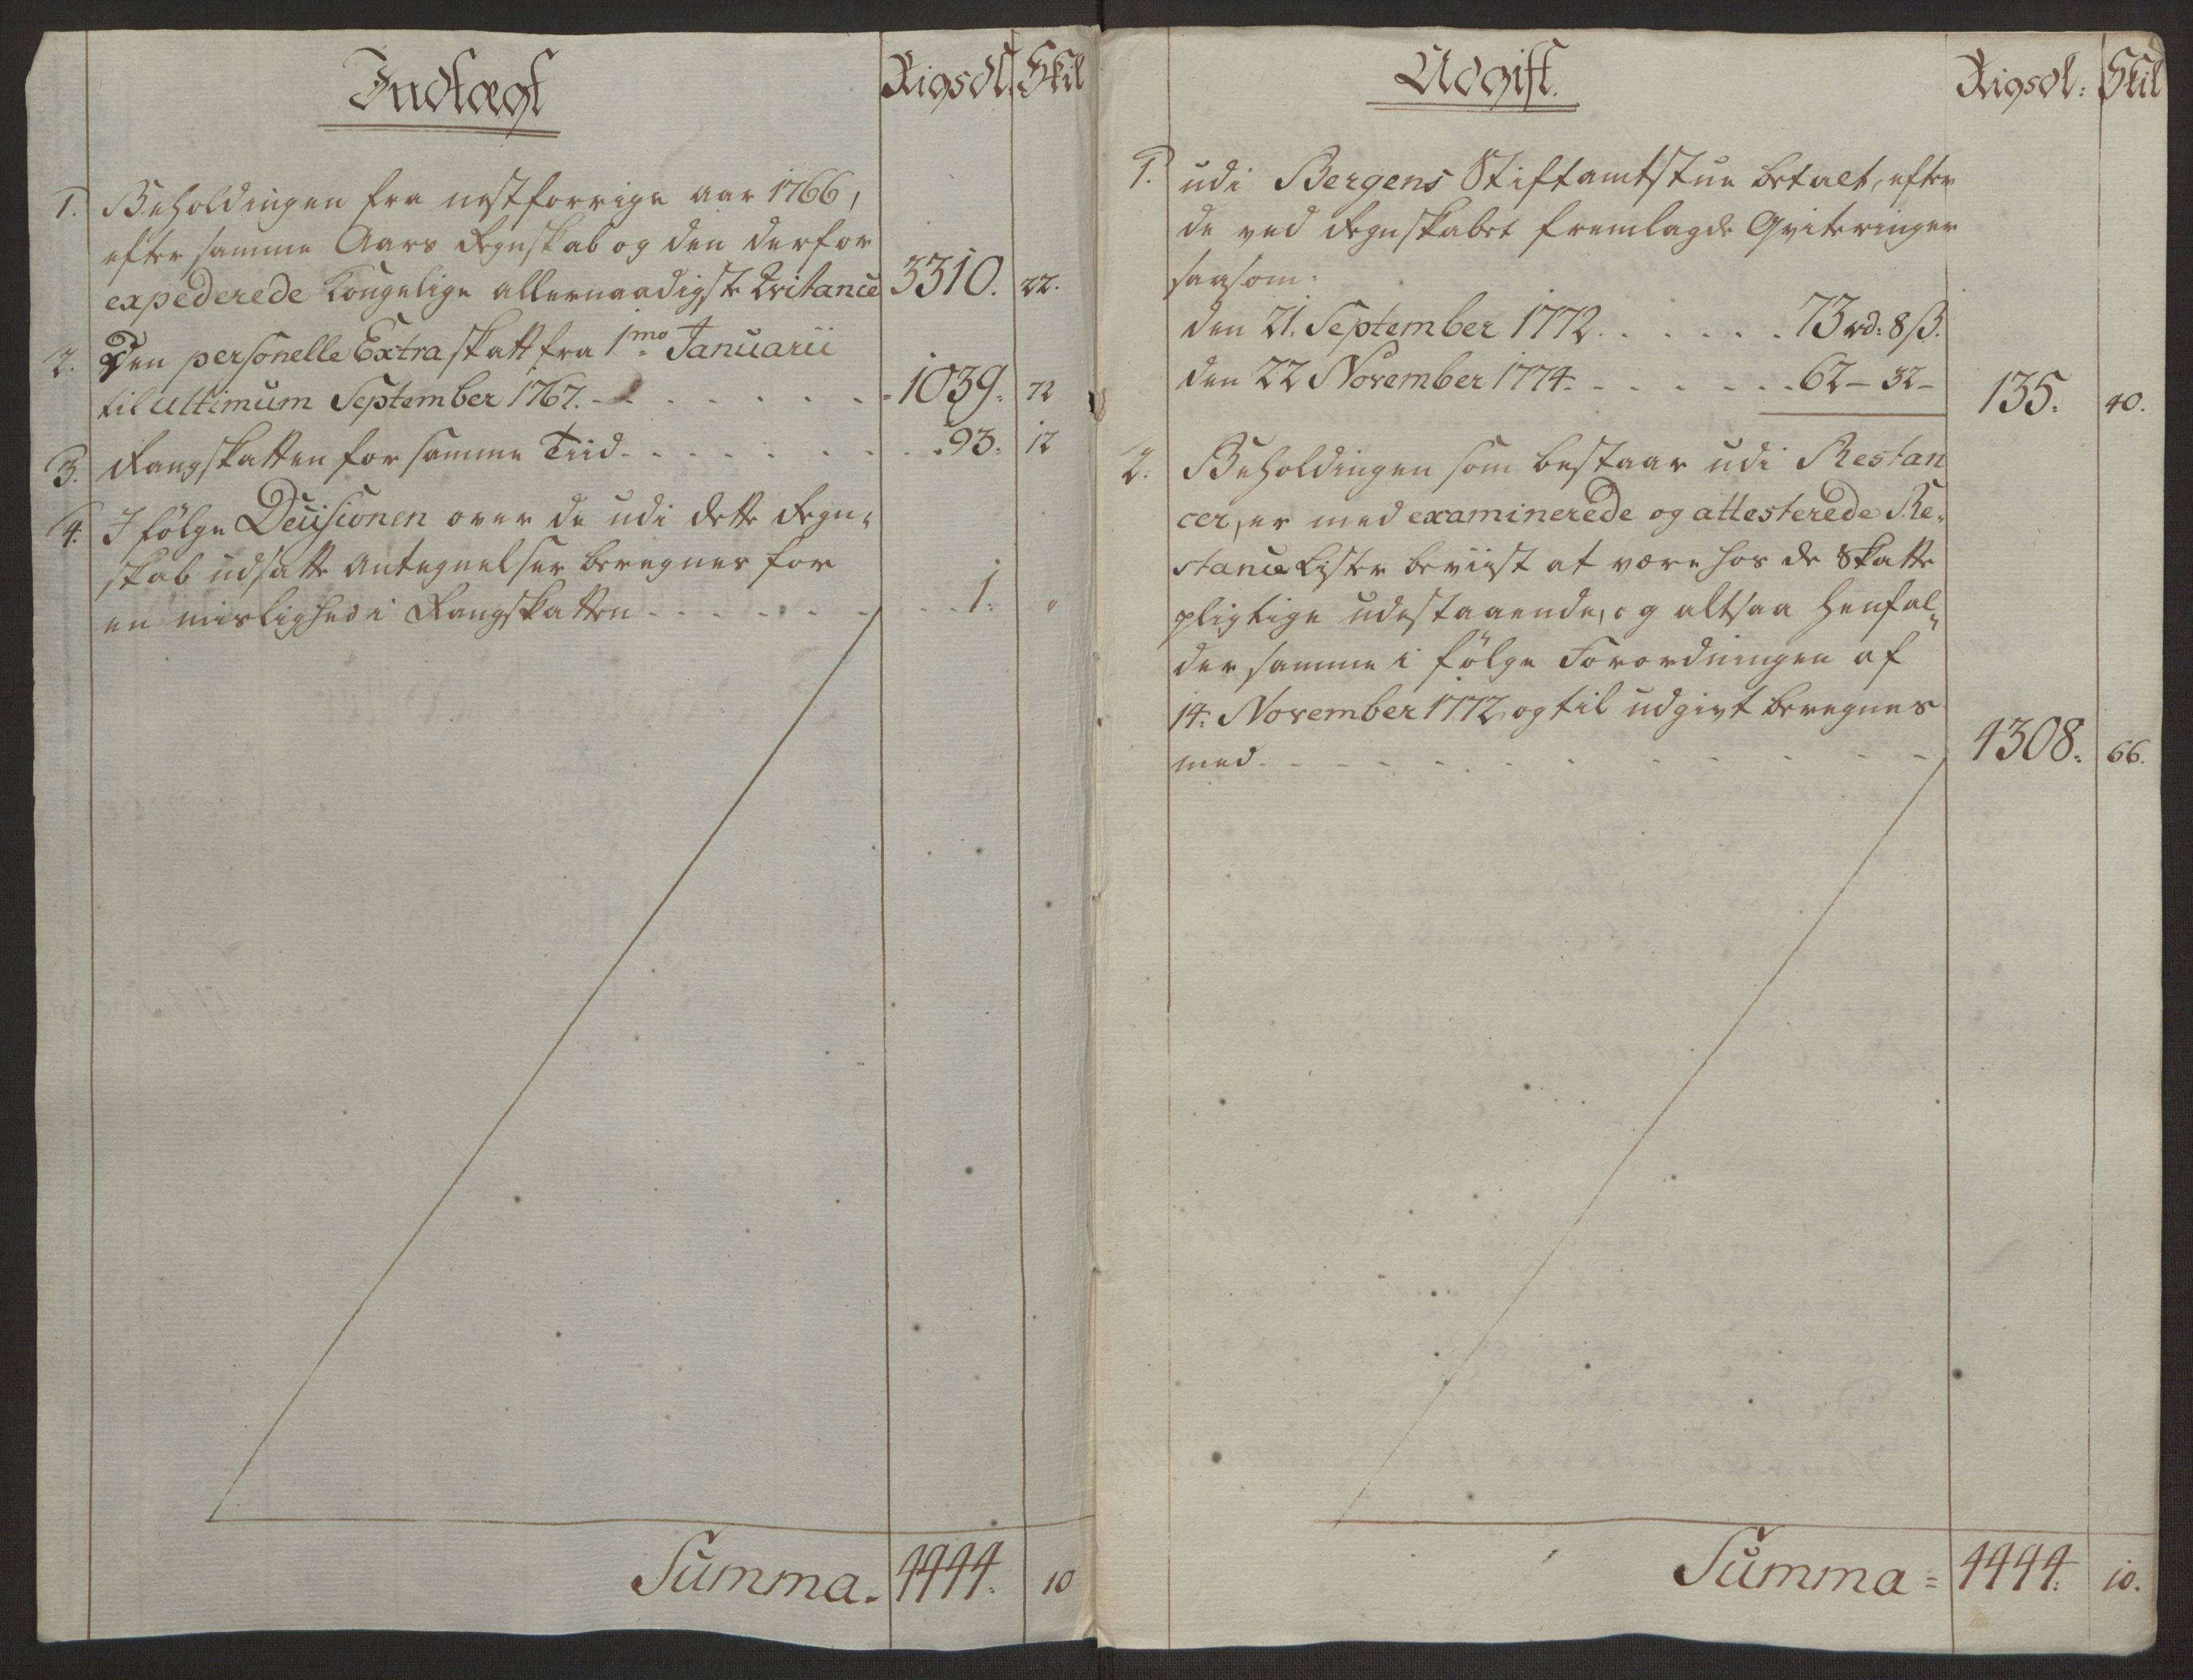 Indtægt
Rigsdl. Skil
1. Beholdingen fra nestforrige aar 1766,
efter samme Aars Regnskab og den derfor
expederede Kongelige allernaadigste Qvitance 3310. 22.
2. Den personelle Extra skatt fra 1mo Januarii
til ultimum September 1767. - - - - - - - 1039. 72
3. Rangskatten for samme Tiid - - - - - - - 93. 12
4. I følge Decisionen over de udi dette Regn-
skab udsatte Antegnelser beregnes for
en mislighed i Rangskatten - - - - - - - 1. "
Summa. 4444. 10
Udgift.
Rigsdl: Skil
1. udi Bergens Stiftamtstue betalt, efter
de ved Regnskabet fremlagde Qviteringer
saasom:
den 21. September 1772. . . . . . 73 rd: 8 ß.
den 22 November 1774. - - - - - - 62 - 32 - 135. 40.
2. Beholdingen som bestaar udi Restan
cer, er med examinerede og attesterede Re-
stance Lister beviist at være hos de Skatte
pligtige udestaaende, og altsaa henfal-
der samme i følge Forordningen af
14. November 1772 og til udgivt beregnes
med - - - - - - - - - - 4308. 66.
Summa = 4444. 10.